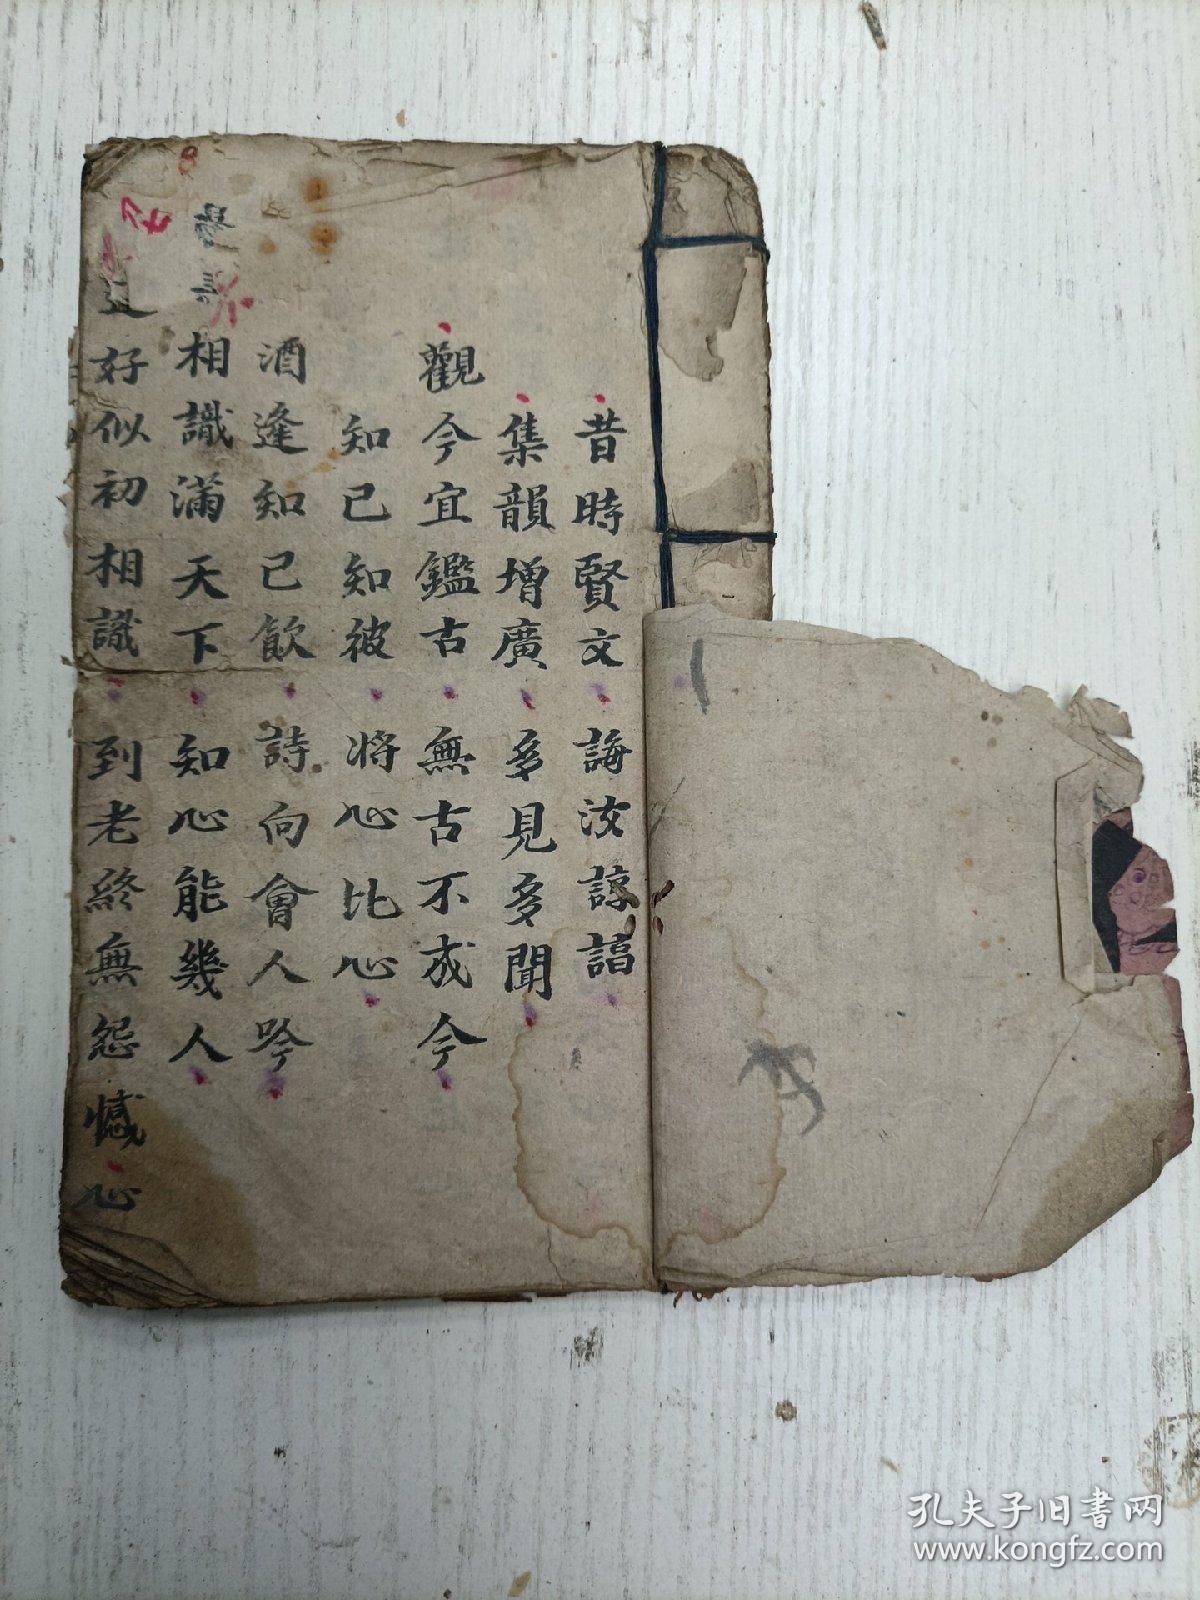 昔時賢文 誨汝諄諄
集韻增廣 多見多聞
觀今宜鑑古 無古不成今
知已知彼 將心比心
酒逢知已飲 詩向會人吟
相識滿天下 知心能幾人
好似初相識 到老終無怨憾心
孔夫子旧书网
www.kongfz.com